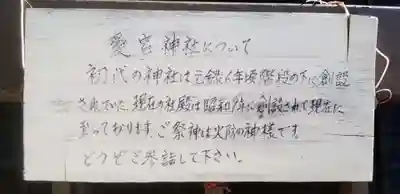 愛宕神社について
初代の神社は元禄八年頃階段の下に創設
されていた、現在の社殿は昭和九年に創設されて現在に
至っております、ご祭神は火防の神様です。
どうぞご参詣して下さい。